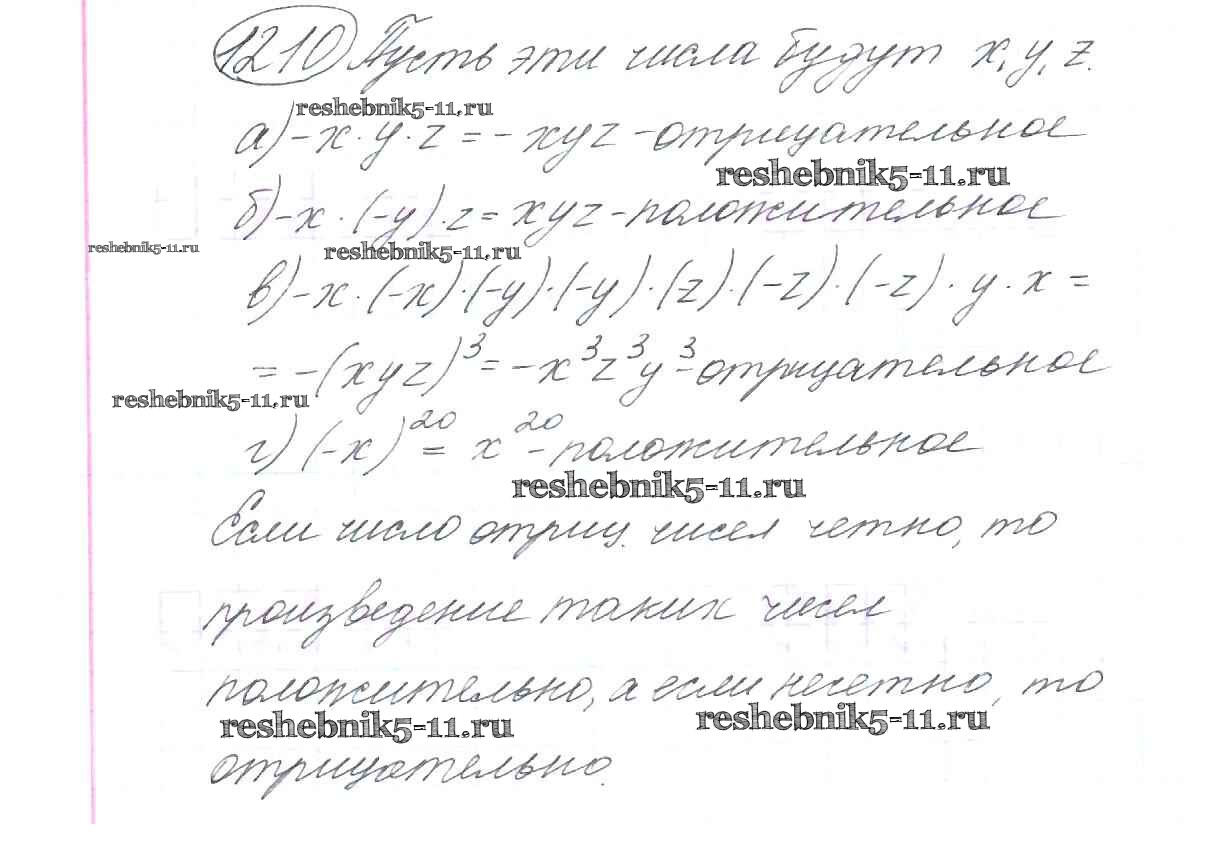 1210 Пусть эти числа будут x, y, z.
reshebnik5-11.ru
а) -x · y · z = - xyz - отрицательное
reshebnik5-11.ru
б) -x · (-y) · z = xyz - положительное
reshebnik5-11.ru
reshebnik5-11.ru
в) -x · (-x) · (-y) · (-y) · (z) · (-z) · (-z) · y · x =
= -(xyz)³ = -x³z³y³ - отрицательное
reshebnik5-11.ru
г) (-x)²⁰ = x²⁰ - положительное
reshebnik5-11.ru
Если число отриц. чисел четно, то
произведение таких чисел
положительно, а если нечетно, то
reshebnik5-11.ru
reshebnik5-11.ru
отрицательно.